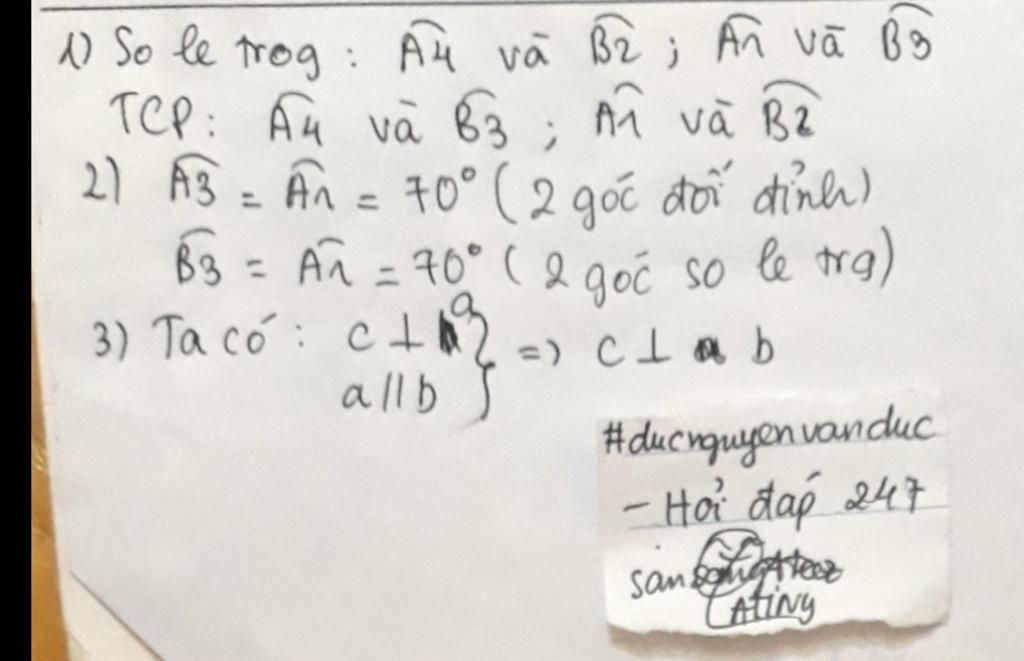 1) So le trog : A4 và B2 ; A1 và B3
TCP: A4 và B3 ; A1 và B2
2) A3 = A1 = 70° ( 2 góc đối đỉnh)
B3 = A1 = 70° ( 2 góc so le trg)
3) Ta có : c ⊥ a } => c ⊥ b
a // b
#ducnguyenvanduc
- Hỏi đáp 247
sàn
Atiny